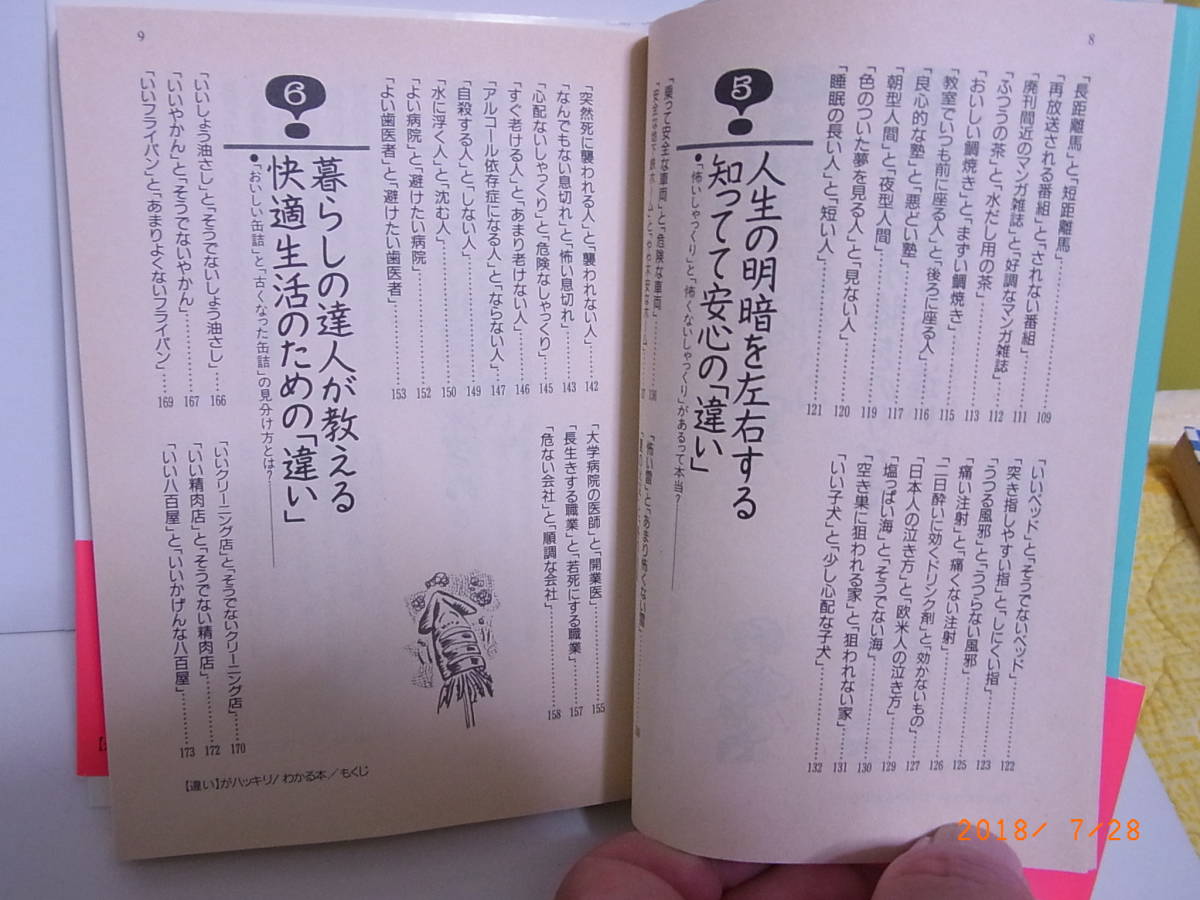 8
「長距離馬」と、「短距離馬」……109
「再放送される番組」と「されない番組」……111
「廃刊間近のマンガ雑誌」と「好調なマンガ雑誌」……112
「ふつうの茶」と「水だし用の茶」……113
「おいしい鯛焼き」と「まずい鯛焼き」……115
「教室でいつも前に座る人」と「後ろに座る人」……116
「良心的な塾」と「悪どい塾」……117
「朝型人間」と「夜型人間」……119
「色のついた夢を見る人」と「見ない人」……120
「睡眠の長い人」と「短い人」……121
5
人生の明暗を左右する
知ってて安心の「違い」
●「怖いしゃっくり」と「怖くないしゃっくり」があるって本当?
「いいベッド」と「そうでないベッド」……122
「突き指しやすい指」と「しにくい指」……123
「うつる風邪」と「うつらない風邪」……125
「痛い注射」と「痛くない注射」……126
「二日酔いに効くドリンク剤」と「効かないもの」……127
「日本人の泣き方」と「欧米人の泣き方」……129
「塩っぱい海」と「そうでない海」……130
「空き巣に狙われる家」と「狙われない家」……131
「いい子犬」と「少し心配な子犬」……132
「乗って安全な車両」と「危険な車両」
「怖い雷」と「あまり怖くない雷」
9
「突然死に襲われる人」と「襲われない人」……142
「なんでもない息切れ」と「怖い息切れ」……143
「心配ないしゃっくり」と「危険なしゃっくり」……145
「すぐ老ける人」と「あまり老けない人」……146
「アルコール依存症になる人」と「ならない人」……147
「自殺する人」と「しない人」……149
「水に浮く人」と「沈む人」……150
「よい病院」と「避けたい病院」……152
「よい歯医者」と「避けたい歯医者」……153
「大学病院の医師」と「開業医」……155
「長生きする職業」と「若死にする職業」……157
「危ない会社」と「順調な会社」……158
6
暮らしの達人が教える
快適生活のための「違い」
●「おいしい缶詰」と「古くなった缶詰」の見分け方とは?
「いいしょう油さし」と「そうでないしょう油さし」……166
「いいやかん」と「そうでないやかん」……167
「いいフライパン」と「あまりよくないフライパン」……169
「いいクリーニング店」と「そうでないクリーニング店」……170
「いい精肉店」と「そうでない精肉店」……172
「いい八百屋」と「いいかげんな八百屋」……173
【違い】がハッキリ!わかる本/もくじ
2018/ 7/28